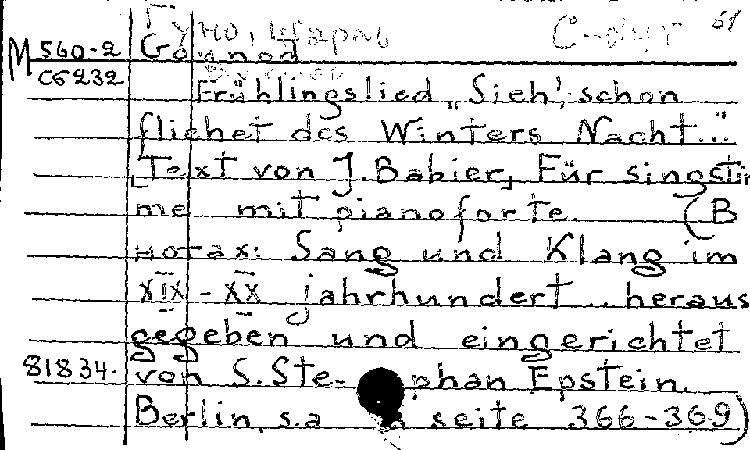 Гуно, Шарль 61
М 560-2 Gounod
С6232 Frühlingslied „Sieh', schon
fliehet des Winters Nacht..."
[Text von J. Babier] Für singstim
me mit pianoforte. (В
нотах: Sang und Klang im
XIX - XX jahrhundert.. heraus
gegeben und eingerichtet
81834. von S. Ste- phan Epstein.
Berlin, s.a seite 366-369)